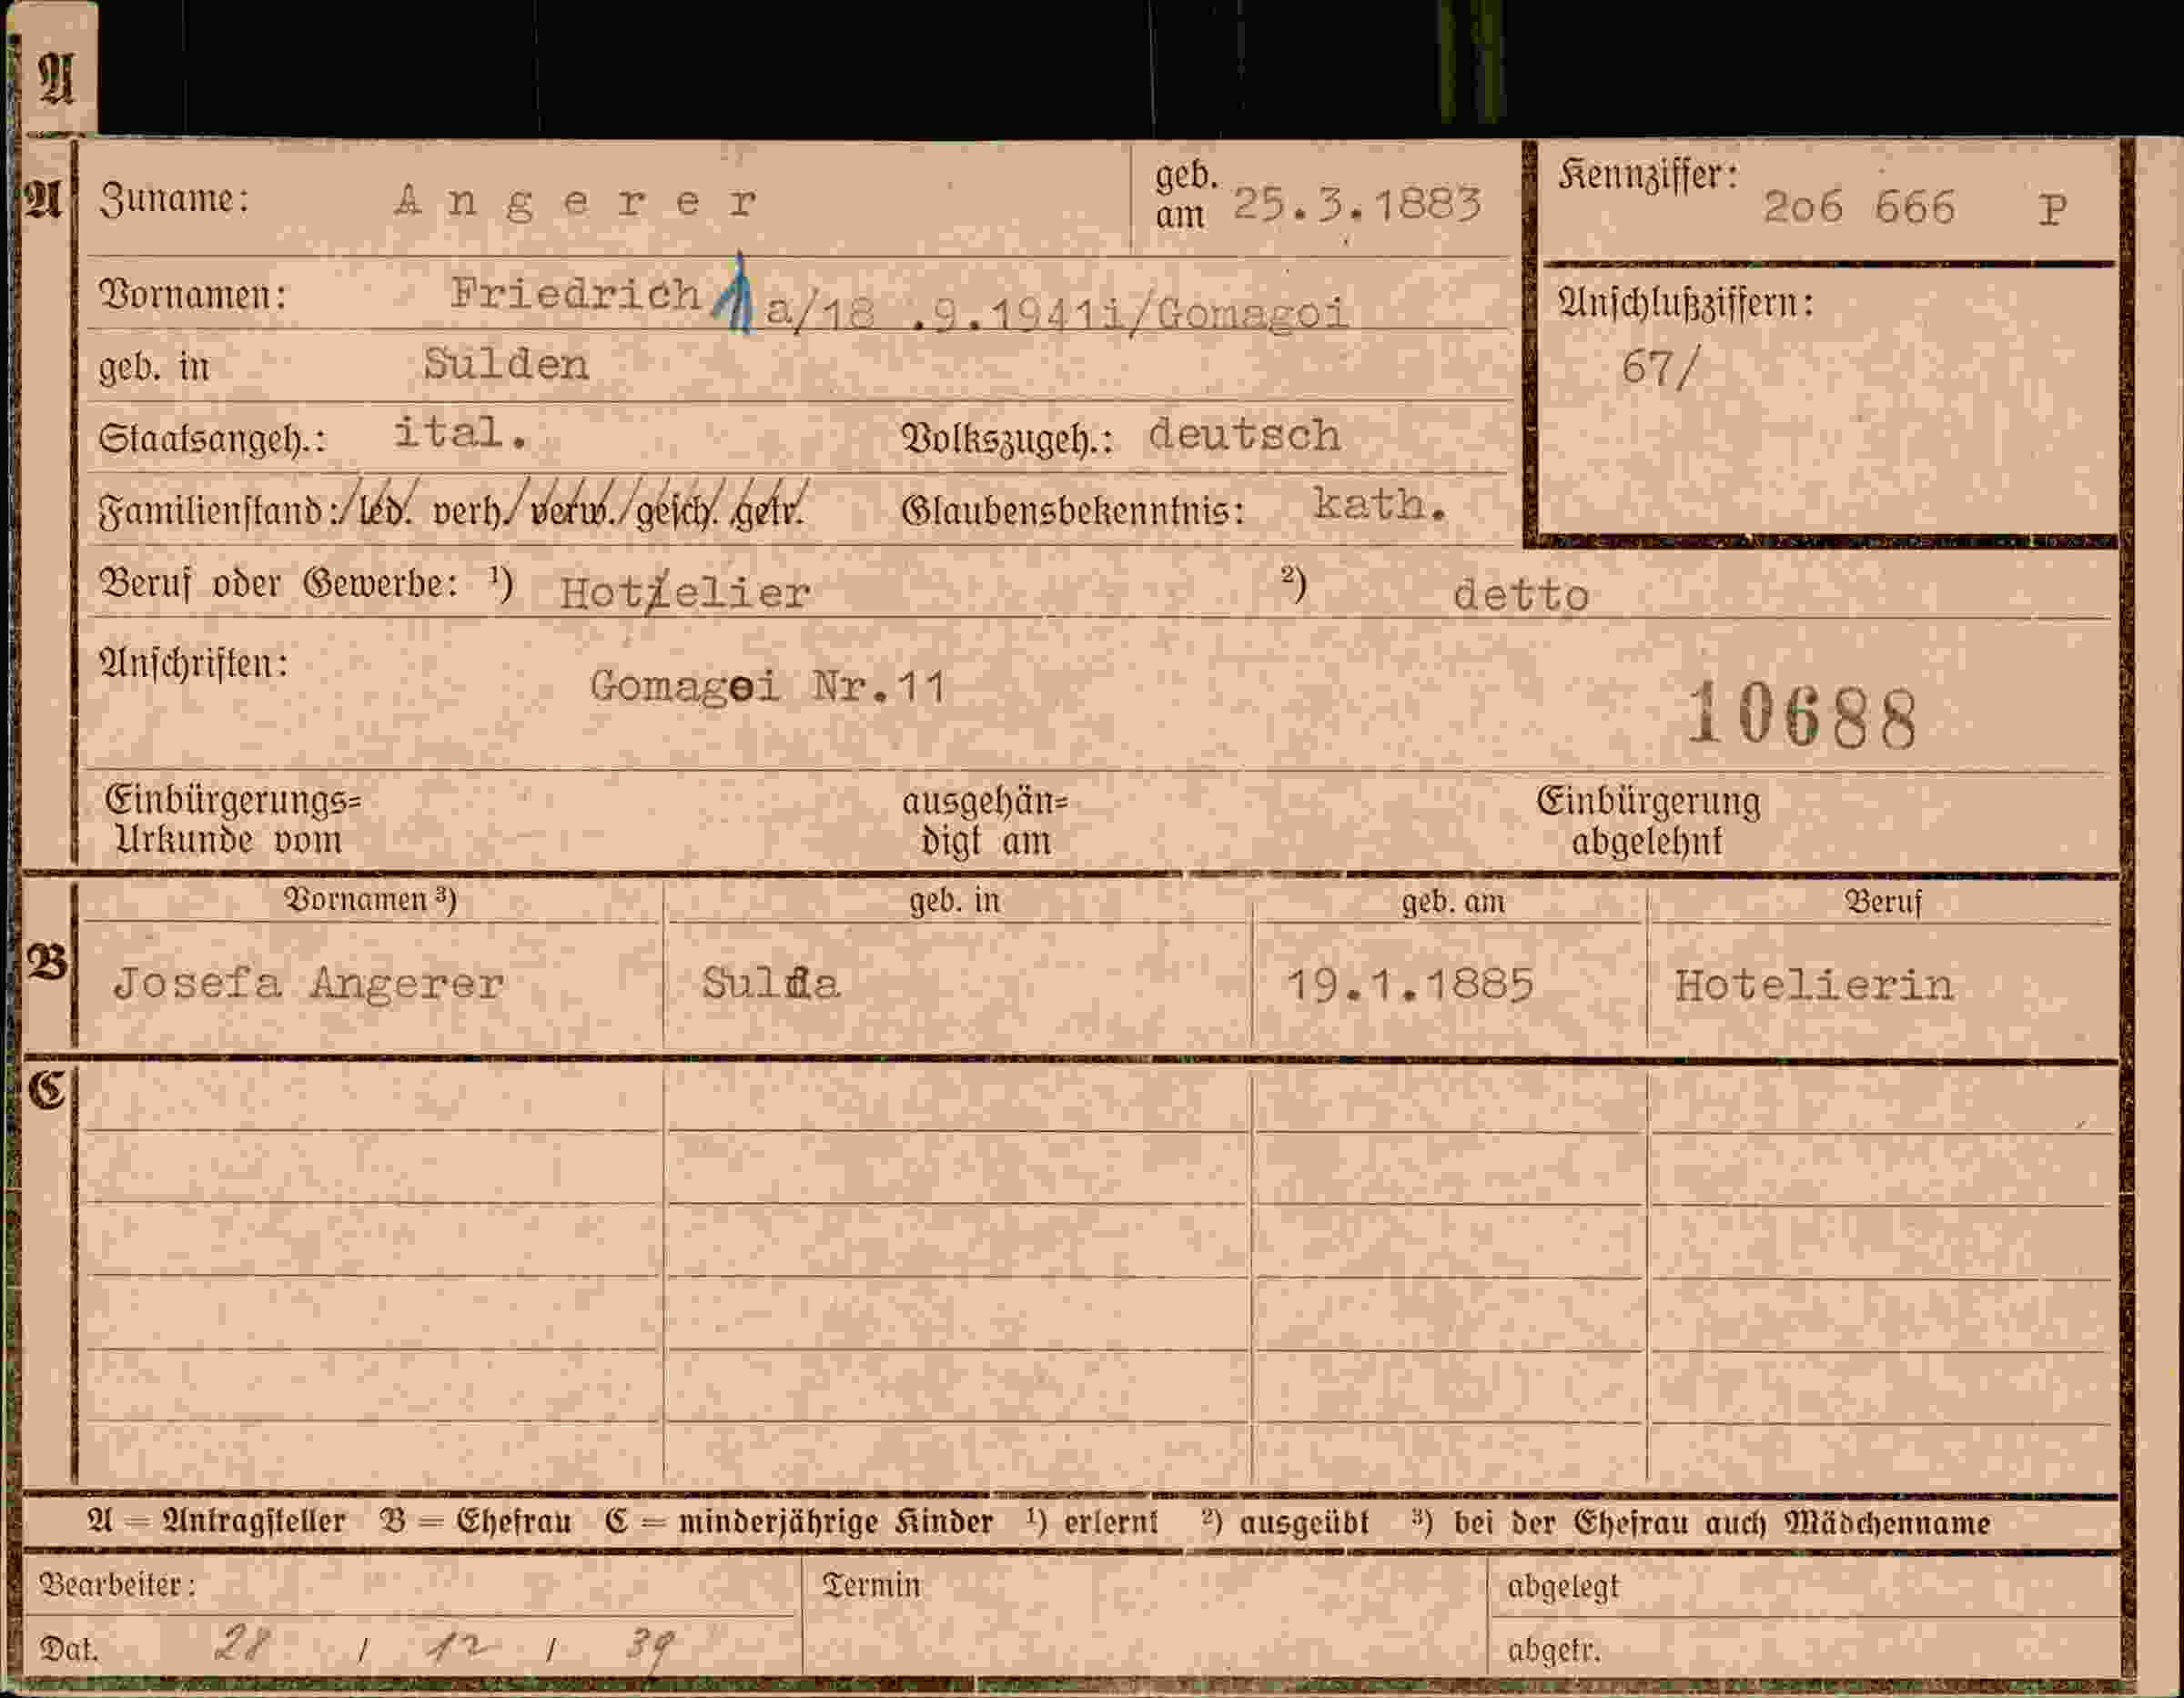 A
A Zuname: Angerer geb. am 25.3.1883 Kennziffer: 2o6 666 P
Vornamen: Friedrich a/18 .9.1941i/Gomagoi Anschlußziffern:
geb. in Sulden 67/
Staatsangeh.: ital. Volkszugeh.: deutsch
Familienstand: led. verh. verw. gesch. getr. Glaubensbekenntnis: kath.
Beruf oder Gewerbe: ¹) Hotelier ²) detto
Anschriften: Gomagoi Nr.11
10688
Einbürgerungs= ausgehän= Einbürgerung
Urkunde vom digt am abgelehnt
Vornamen ³) geb. in geb. am Beruf
B Josefa Angerer Sulda 19.1.1885 Hotelierin
C
A = Antragsteller B = Ehefrau C = minderjährige Kinder ¹) erlernt ²) ausgeübt ³) bei der Ehefrau auch Mädchenname
Bearbeiter: Termin abgelegt
Dat. 28 / 12 / 39 abgetr.